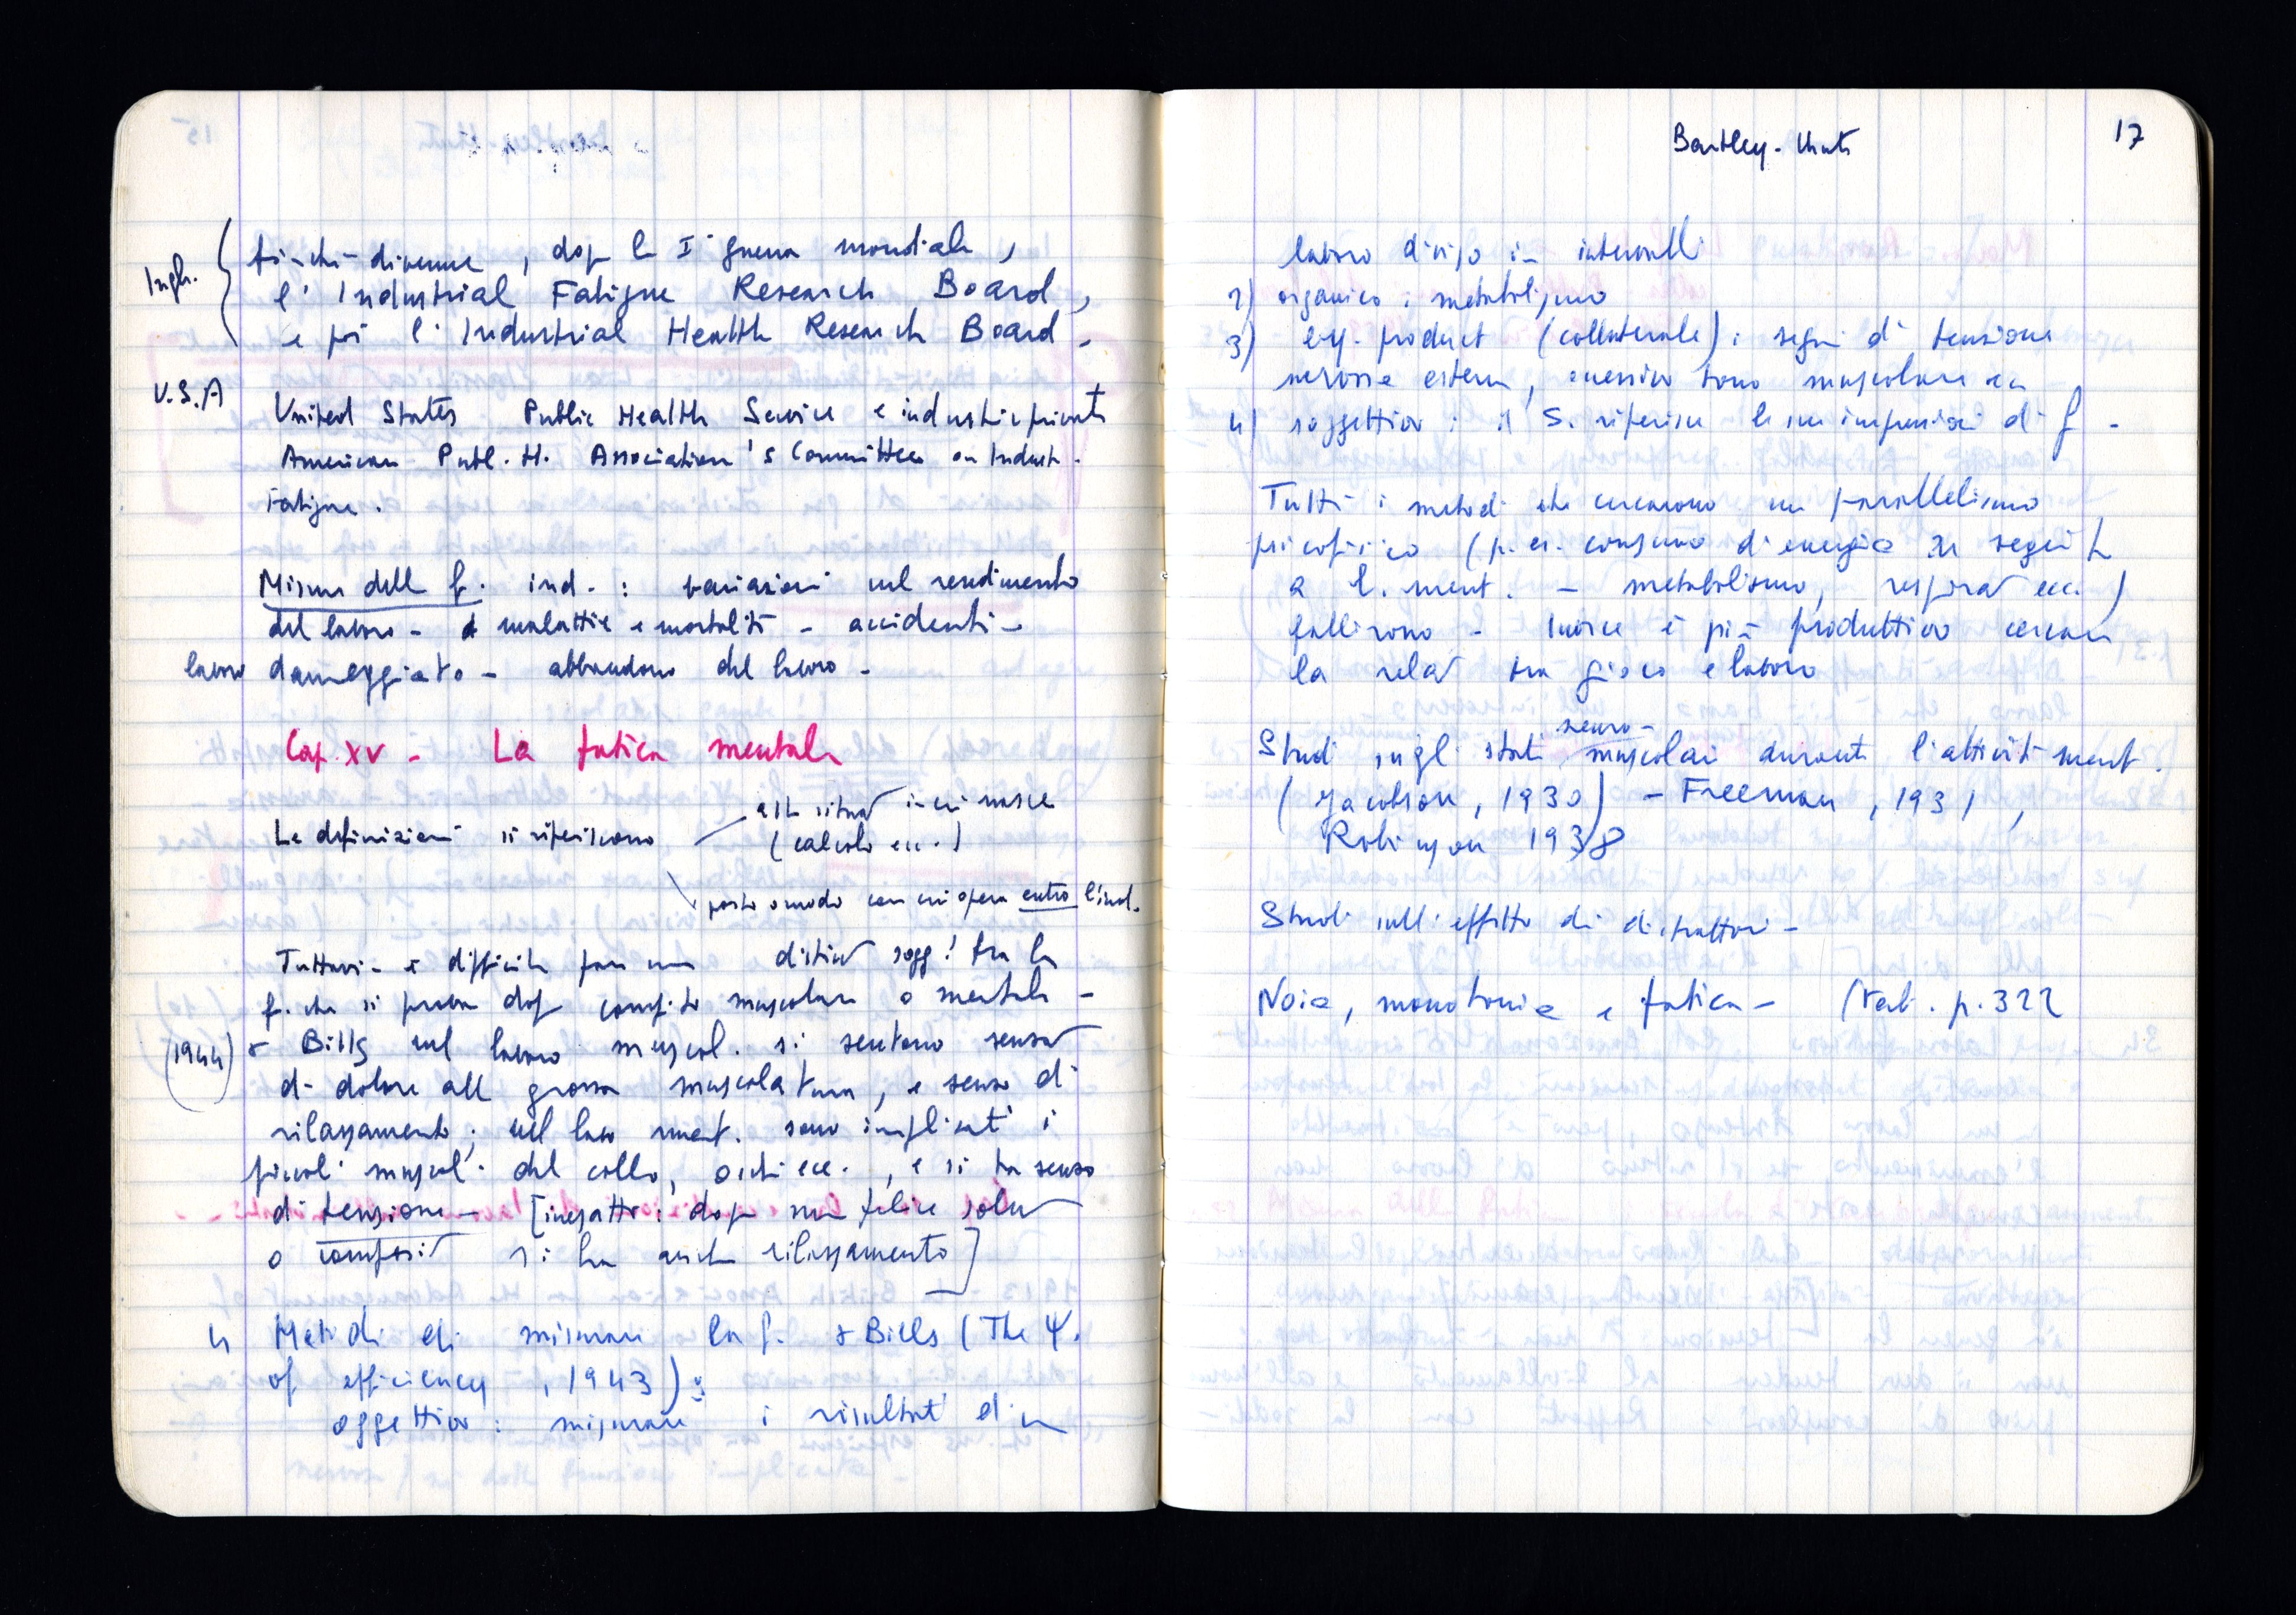 Ingh.
finchè divenne, dopo la Iª guerra mondiale,
l'Industrial Fatigue Research Board,
e poi l'Industrial Health Research Board -
U.S.A
United States Public Health Service e industrie private
American Publ. H. Association's Committee on Indust.
Fatigue.
Misura della f. ind. : variazioni nel rendimento
del lavoro - malattie e mortalità - accidenti -
lavoro danneggiato - abbandono del lavoro -
Cap. XV - La fatica mentale
alla situaz in cui nasce
Le definizioni si riferiscono
(calcolo ecc.)
posto o modo con cui opera entro l'ind.
Tuttavia è difficile fare una distinz sogg! tra la
f. che si prova dopo compito muscolare o mentale -
(1944) x Bills nel lavoro muscol. si sentono sensaz
di dolore alla grossa muscolatura, e senso di
rilassamento; nel lavo ment. sono implicati i
piccoli muscoli del collo, occhi ecc., e si ha senso
di tensione - [inesatto: dopo una felice soluz
o composiz si ha anche rilassamento]
4 Metodi di misurare la f. x Bills (The Ψ.
of efficiency, 1943):
oggettivo: misurare i risultati di un
Bartley - Chute
17
lavoro diviso in intervalli
2) organico: metabolismo
3) by-product (collaterale): segni di tensione
nervosa esterna, eccessivo tono muscolare ecc
4) soggettivo: il S. riferisce le sue impressioni di f -
Tutti i metodi che cercarono un parallelismo
psicofisico (p. es. consumo di energia in seguito
a l. ment. - metabolismo, respiraz ecc.)
fallirono - Invece è più produttivo cercare
la relaz tra gioco e lavoro
neuro-
Studi sugli stati muscolari durante l'attività ment.
(Jacobson, 1930) - Freeman, 1931,
Robinson 1938
Studi sull'effetto di distrattori -
Noia, monotonia e fatica - (Tab. p. 322